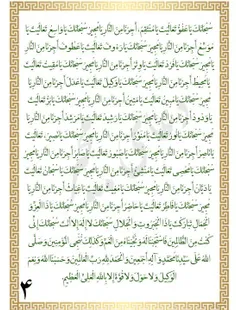 سُبْحَانَكَ يَا عَفُوُّ تَعَالَيْتَ يَا مُنْتَقِمُ أَجِرْنَا مِنَ النَّارِ يَا مُجِيرُ سُبْحَانَكَ يَا وَاسِعُ تَعَالَيْتَ يَا
مُوَسِّعُ أَجِرْنَا مِنَ النَّارِ يَا مُجِيرُ سُبْحَانَكَ يَا رَءُوفُ تَعَالَيْتَ يَا عَطُوفُ أَجِرْنَا مِنَ النَّارِ يَا
مُجِيرُ سُبْحَانَكَ يَا فَرْدُ تَعَالَيْتَ يَا وِتْرُ أَجِرْنَا مِنَ النَّارِ يَا مُجِيرُ سُبْحَانَكَ يَا مُقِيتُ تَعَالَيْتَ
يَا مُحِيطُ أَجِرْنَا مِنَ النَّارِ يَا مُجِيرُ سُبْحَانَكَ يَا وَكِيلُ تَعَالَيْتَ يَا عَدْلُ أَجِرْنَا مِنَ النَّارِ يَا
مُجِيرُ سُبْحَانَكَ يَا مُبِينُ تَعَالَيْتَ يَا مَتِينُ أَجِرْنَا مِنَ النَّارِ يَا مُجِيرُ سُبْحَانَكَ يَا بَرُّ تَعَالَيْتَ
يَا وَدُودُ أَجِرْنَا مِنَ النَّارِ يَا مُجِيرُ سُبْحَانَكَ يَا رَشِيدُ تَعَالَيْتَ يَا مُرْشِدُ أَجِرْنَا مِنَ النَّارِ يَا
مُجِيرُ سُبْحَانَكَ يَا نُورُ تَعَالَيْتَ يَا مُنَوِّرُ أَجِرْنَا مِنَ النَّارِ يَا مُجِيرُ سُبْحَانَكَ يَا نَصِيرُ تَعَالَيْتَ
يَا نَاصِرُ أَجِرْنَا مِنَ النَّارِ يَا مُجِيرُ سُبْحَانَكَ يَا صَبُورُ تَعَالَيْتَ يَا صَابِرُ أَجِرْنَا مِنَ النَّارِ يَا
مُجِيرُ سُبْحَانَكَ يَا مُحْصِي تَعَالَيْتَ يَا مُنْشِئُ أَجِرْنَا مِنَ النَّارِ يَا مُجِيرُ سُبْحَانَكَ يَا سُبْحَانُ تَعَالَيْتَ
يَا دَيَّانُ أَجِرْنَا مِنَ النَّارِ يَا مُجِيرُ سُبْحَانَكَ يَا مُغِيثُ تَعَالَيْتَ يَا غِيَاثُ أَجِرْنَا مِنَ النَّارِ يَا
مُجِيرُ سُبْحَانَكَ يَا فَاطِرُ تَعَالَيْتَ يَا حَاضِرُ أَجِرْنَا مِنَ النَّارِ يَا مُجِيرُ سُبْحَانَكَ يَا ذَا الْعِزِّ وَ
الْجَمَالِ تَبَارَكْتَ يَا ذَا الْجَبَرُوتِ وَ الْجَلَالِ سُبْحَانَكَ لَا إِلَهَ إِلَّا أَنْتَ سُبْحَانَكَ إِنِّي
كُنْتُ مِنَ الظَّالِمِينَ فَاسْتَجَبْنَا لَهُ وَ نَجَّيْنَاهُ مِنَ الْغَمِّ وَ كَذَلِكَ نُنْجِي الْمُؤْمِنِينَ وَ صَلَّى
اللَّهُ عَلَى سَيِّدِنَا مُحَمَّدٍ وَ آلِهِ أَجْمَعِينَ وَ الْحَمْدُ لِلَّهِ رَبِّ الْعَالَمِينَ وَ حَسْبُنَا اللَّهُ وَ نِعْمَ
الْوَكِيلُ وَ لَا حَوْلَ وَ لَا قُوَّةَ إِلَّا بِاللَّهِ الْعَلِيِّ الْعَظِيمِ.
۴